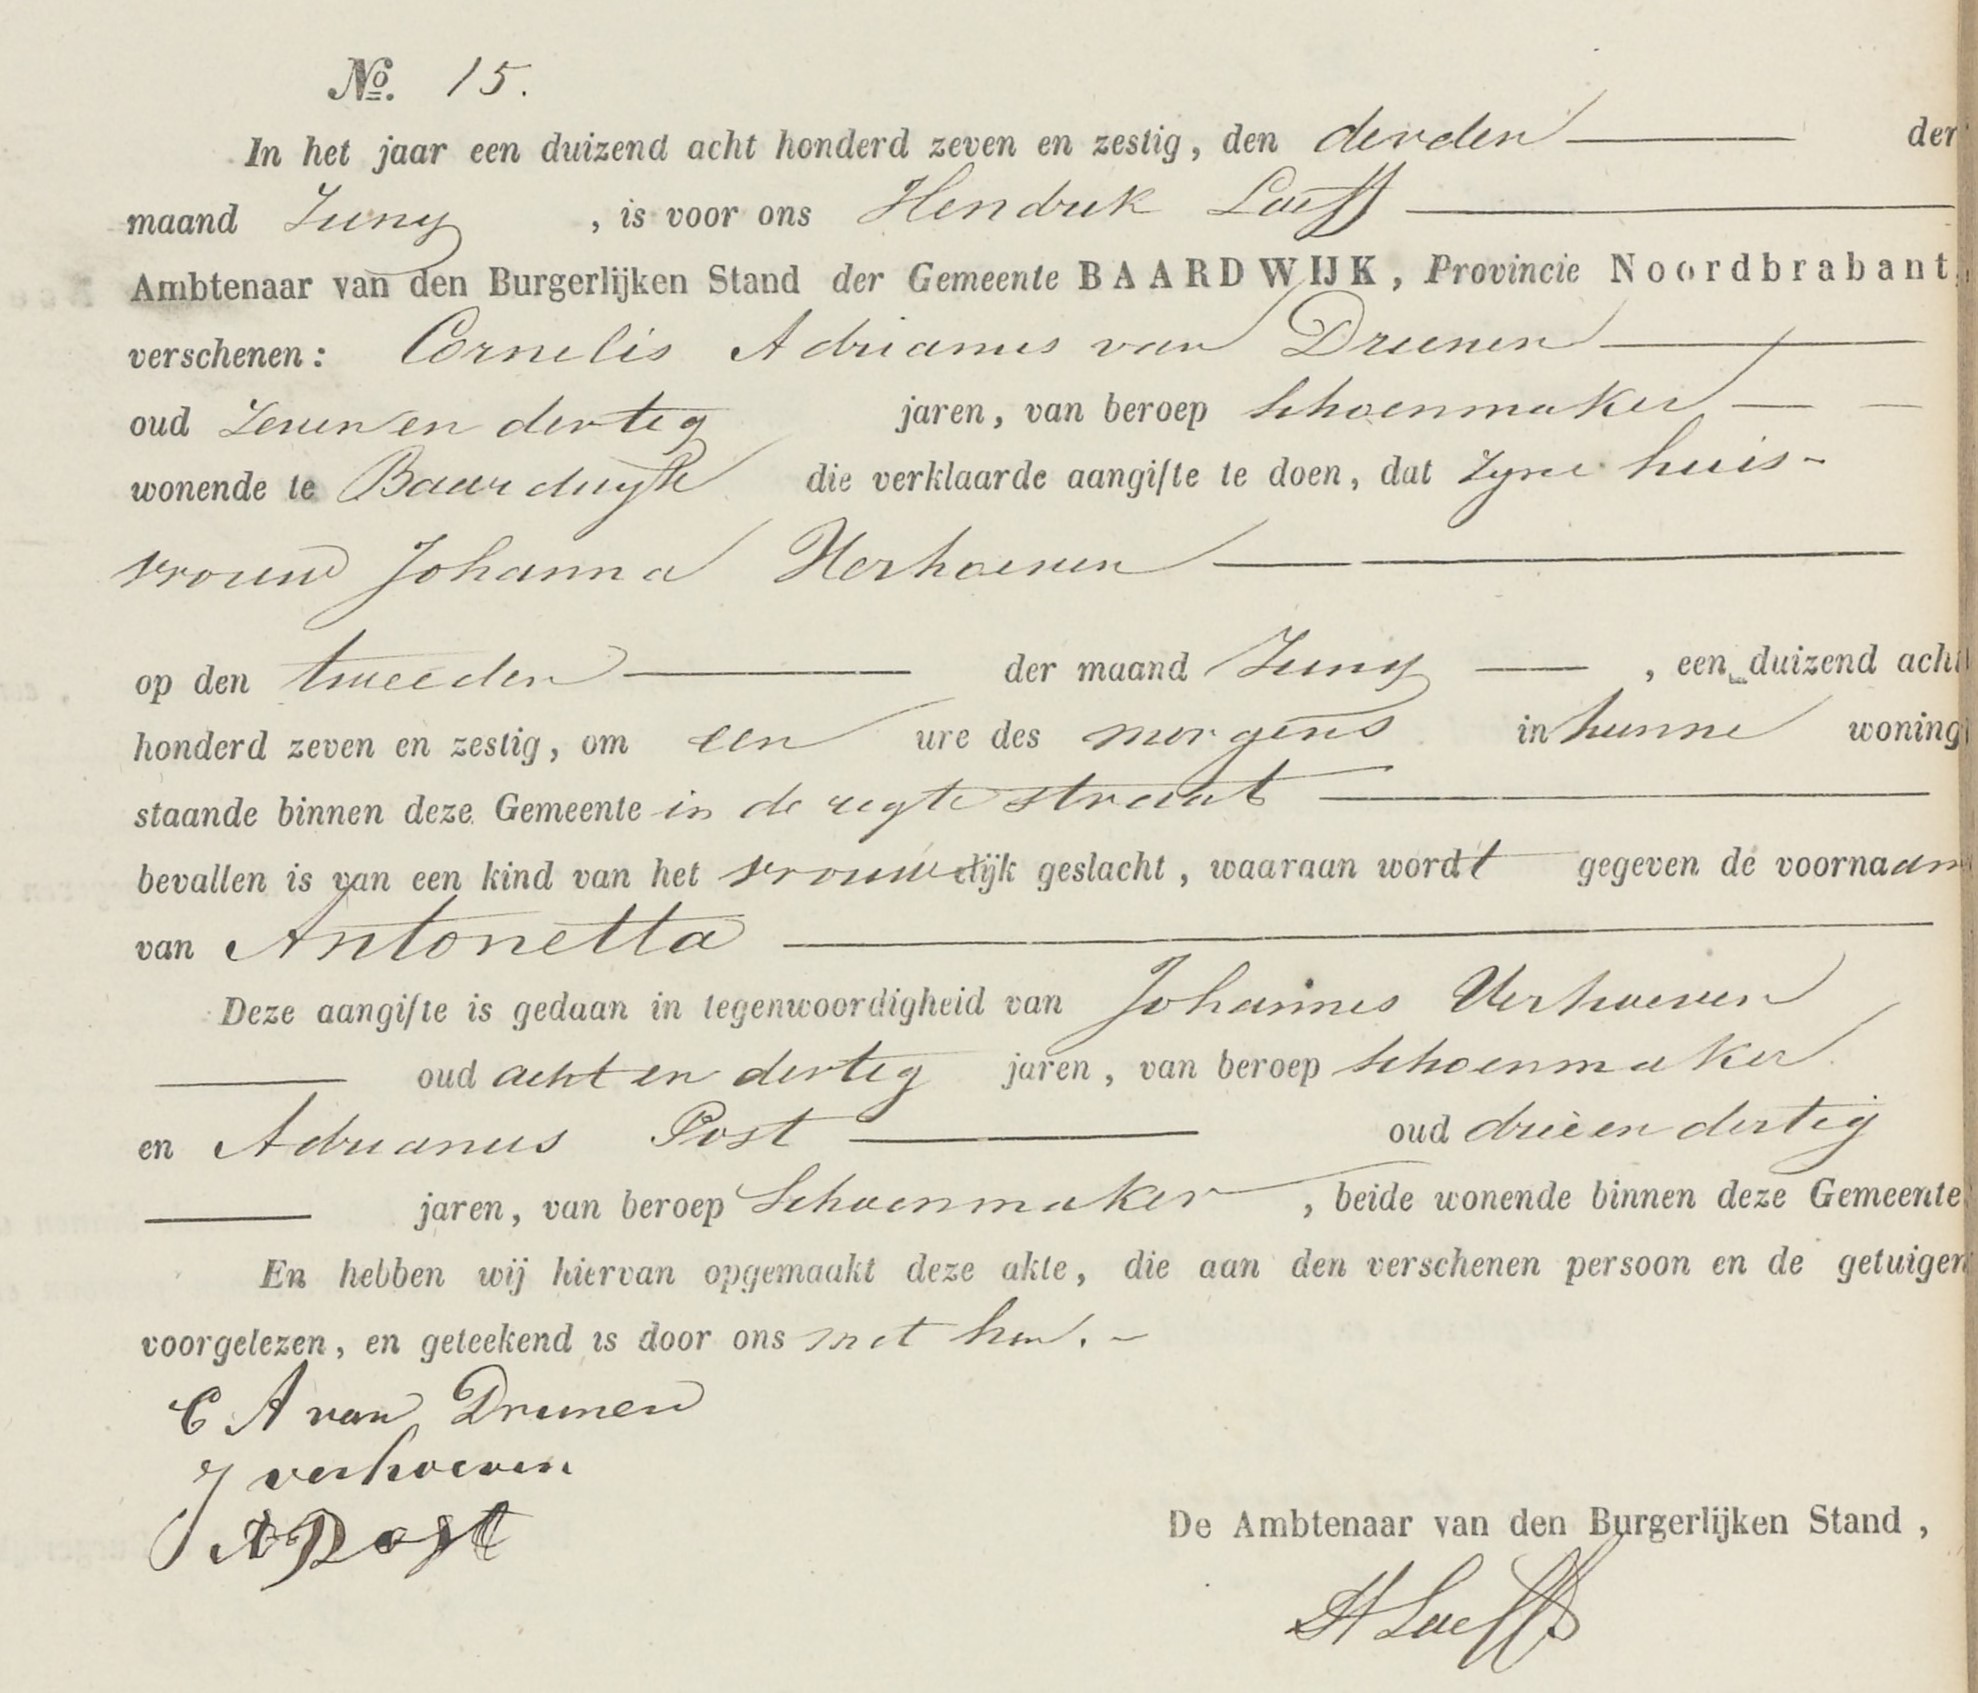 No. 15.
In het jaar een duizend acht honderd zeven en zestig, den derden der
maand Juny, is voor ons Hendrik Loeff
Ambtenaar van den Burgerlijken Stand der Gemeente BAARDWIJK, Provincie Noordbrabant,
verschenen: Cornelis Adrianus van Drunen
oud zeven en dertig jaren, van beroep schoenmaker
wonende te Baardwyk die verklaarde aangifte te doen, dat zyne huis-
vrouw Johanna Verhoeven
op den tweeden der maand Juny, een duizend acht
honderd zeven en zestig, om een ure des morgens in hunne woning
staande binnen deze Gemeente in de regte straat
bevallen is van een kind van het vrouwelijk geslacht, waaraan wordt gegeven de voornaam
van Antonetta
Deze aangifte is gedaan in tegenwoordigheid van Johannes Verhoeven
oud acht en dertig jaren, van beroep schoenmaker
en Adrianus Post oud drie en dertig
jaren, van beroep Schoenmaker, beide wonende binnen deze Gemeente
En hebben wij hiervan opgemaakt deze akte, die aan den verschenen persoon en de getuigen
voorgelezen, en geteekend is door ons met hen.
C A van Drunen
J verhoeven
A Post
De Ambtenaar van den Burgerlijken Stand,
H Loeff